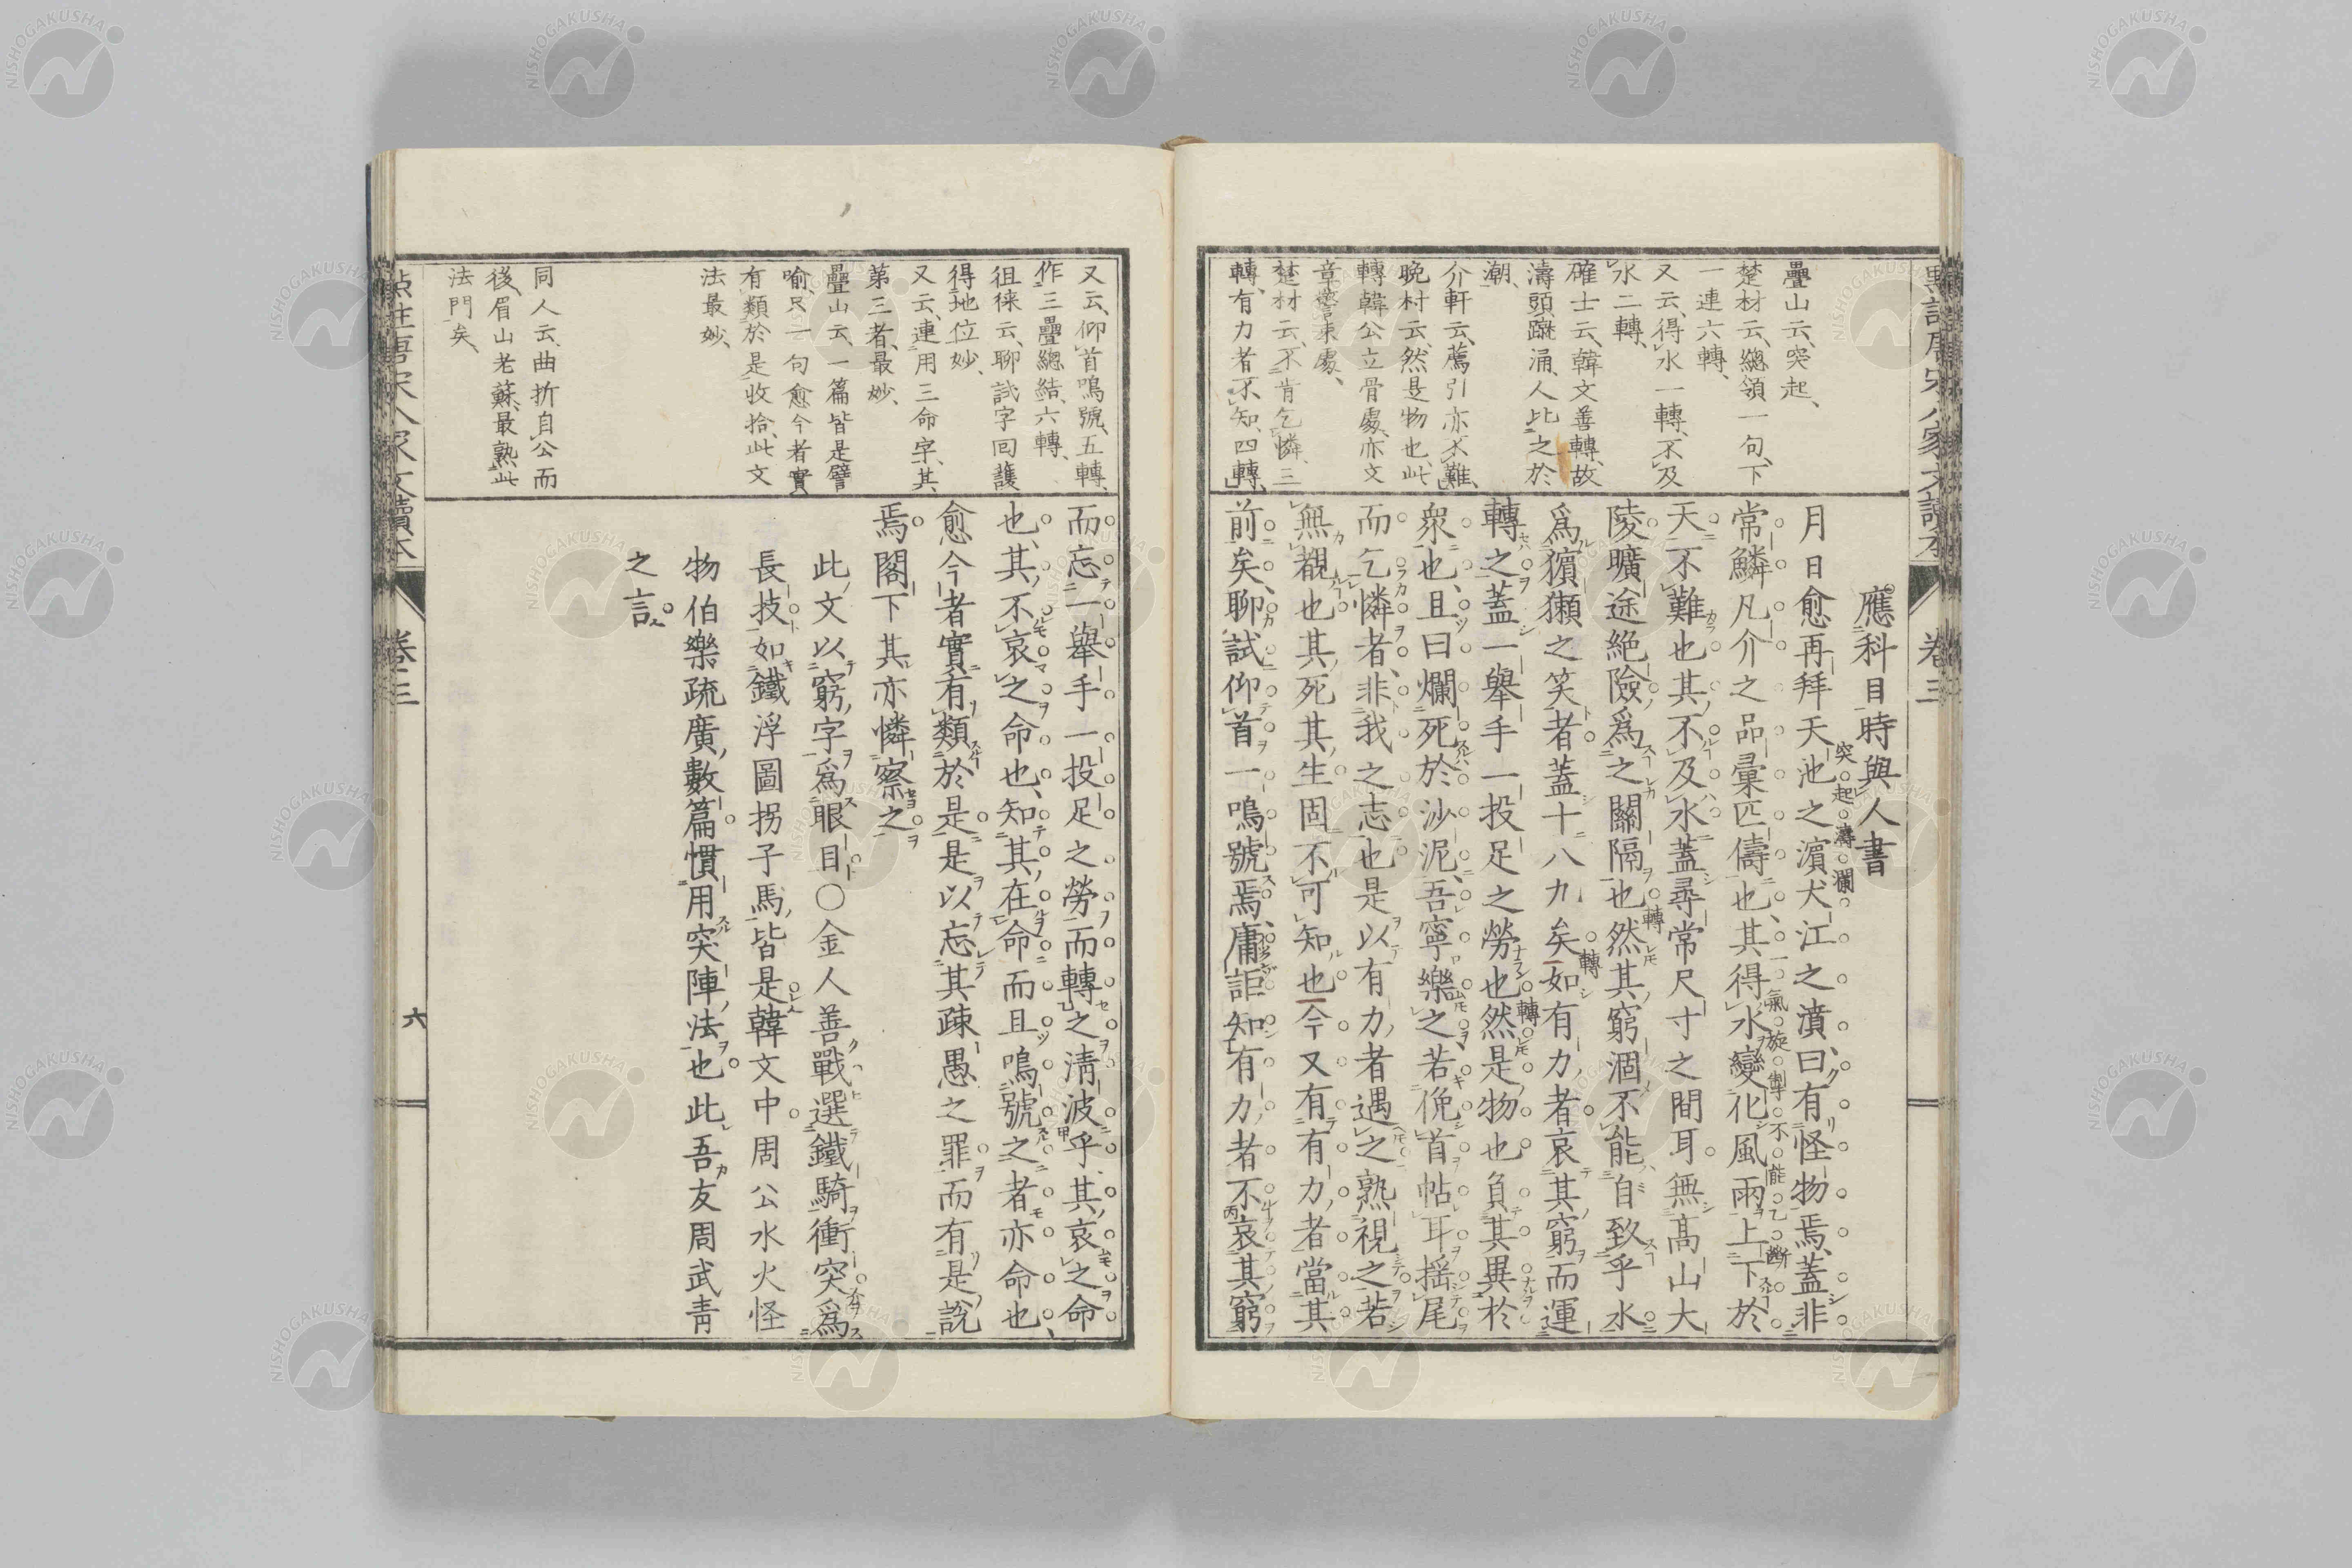 應科目時與人書
月日愈再拜天池之濱犬江之濆曰有怪物焉蓋非
常鱗凡介之品彙匹儔也其得水變化風雨上下於
天不難也其不及水蓋尋常尺寸之間耳無高山大
陵曠途絕險爲之關隔也然其窮涸不能自致乎水
爲獱獺之笑者蓋十八九矣如有力者哀其窮而運
轉之蓋一舉手一投足之勞也然是物也負其異於
衆也且曰爛死於沙泥吾寧樂之若俛首帖耳搖尾
而乞憐者非我之志也是以有力者遇之熟視之若
無覩也其死其生固不可知也今又有有力者當其
前矣聊試仰首一鳴號焉庸詎知有力者不哀其窮
疊山云、突起、
楚材云、總領一句、下
一連六轉、
又云、得水一轉、不及
水二轉、
確士云、韓文善轉、故
濤頭蹴涌、人比之於
潮、
介軒云、薦引亦不難、
晚村云、然是物也、此
轉韓公立骨處、亦文
章警束處、
楚材云、不肯乞憐、三
轉、有力者不知、四轉、
突起濤瀾
一氣旋制不能乙斷
轉
轉
轉
卷三
而忘一舉手一投足之勞而轉之淸波乎其哀之命
也其不哀之命也知其在命而且鳴號之者亦命也
愈今者實有類於是是以忘其疎愚之罪而有是說
焉閣下其亦憐察之
此文以窮字爲眼目〇金人善戰選鐵騎衝突爲
長技如鐵浮圖拐子馬皆是韓文中周公水火怪
物伯樂疏廣數篇慣用突陣法也此吾友周武靑
之言
又云、仰首鳴號、五轉、
作三疊總結、六轉、
徂徠云、聊試字回護
得地位妙、
又云、連用三命字、其
第三者、最妙、
疊山云、一篇皆是譬
喻、只一句愈今者實
有類於是收拾、此文
法最妙、
同人云、曲折自公而
後、眉山老蘇、最熟此
法門矣、
卷三
六